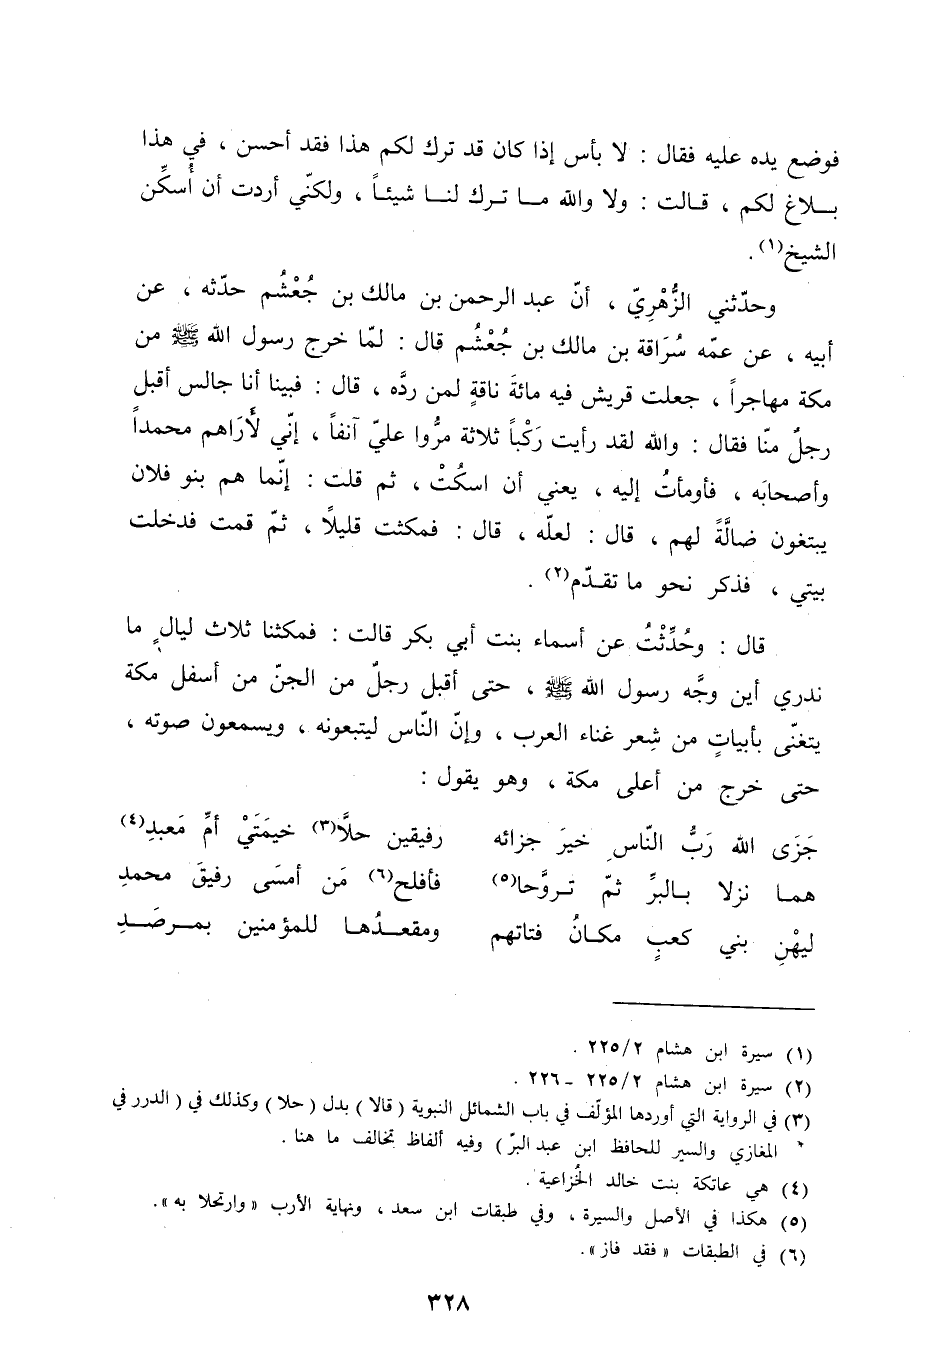 فوضع يده عليه فقال : لا بأس إذا كان قد ترك لكم هذا فقد أحسن ، في هذا
بـلاغ لكم ، قـالت : ولا والله مـا تـرك لنـا شيئـاً ، ولكنّي أردت أن أُسكِّن
الشيخ(١) .
وحدّثني الزُّهْرِيّ ، أنّ عبد الرحمن بن مالك بن جُعْشُم حدّثه ، عن
أبيه ، عن عمّه سُرَاقة بن مالك بن جُعْشُم قال : لمّا خرج رسول الله ﷺ من
مكة مهاجراً ، جعلت قريش فيه مائةَ ناقةٍ لمن ردَّه ، قال : فبينا أنا جالس أقبل
رجلٌ منّا فقال : والله لقد رأيت رَكْباً ثلاثة مرُّوا عليّ آنفاً ، إنّي لأَرَاهم محمداً
وأصحابَه ، فأومأتُ إليه ، يعني أن اسكُتْ ، ثم قلت : إنّما هم بنو فلان
يبتغون ضالَّةً لهم ، قال : لعلّه ، قال : فمكثت قليلًا ، ثمّ قمت فدخلت
بيتي ، فذكر نحو ما تقـدّم(٢) .
قال : وحُدِّثْتُ عن أسماء بنت أبي بكر قالت : فمكثنا ثلاث ليالٍ ما
ندري أين وجَّه رسول الله ﷺ ، حتى أقبل رجلٌ من الجنّ من أسفل مكة
يتغنّى بأبياتٍ من شِعر غناء العرب ، وإنّ النّاس ليتبعونه ، ويسمعون صوته ،
حتى خرج من أعلى مكة ، وهو يقول :
جَزَى الله رَبُّ النّاسِ خيرَ جزائه رفيقين حلَّا(٣) خيمَتَيْ أمِّ مَعبدِ(٤)
همـا نزلا بـالبرِّ ثمّ تـروَّحا(٥) فأفلح(٦) مَن أمسَى رفيقَ محمدِ
ليهْنِ بني كعبٍ مكـانُ فتاتهم ومقعـدُهـا للمؤمنين بمـرصَـدِ
(١) سيرة ابن هشام ٢/٢٢٥ .
(٢) سيرة ابن هشام ٢/٢٢٥ ـ ٢٢٦ .
(٣) في الرواية التي أوردها المؤلّف في باب الشمائل النبوية (قالا) بدل (حلا) وكذلك في (الدرر في
المغازي والسير للحافظ ابن عبد البرّ) وفيه ألفاظ تخالف ما هنا .
(٤) هي عاتكة بنت خالد الخُزاعية .
(٥) هكذا في الأصل والسيرة ، وفي طبقات ابن سعد ، ونهاية الأرب «وارتحلا به» .
(٦) في الطبقات «فقد فاز» .
٣٢٨